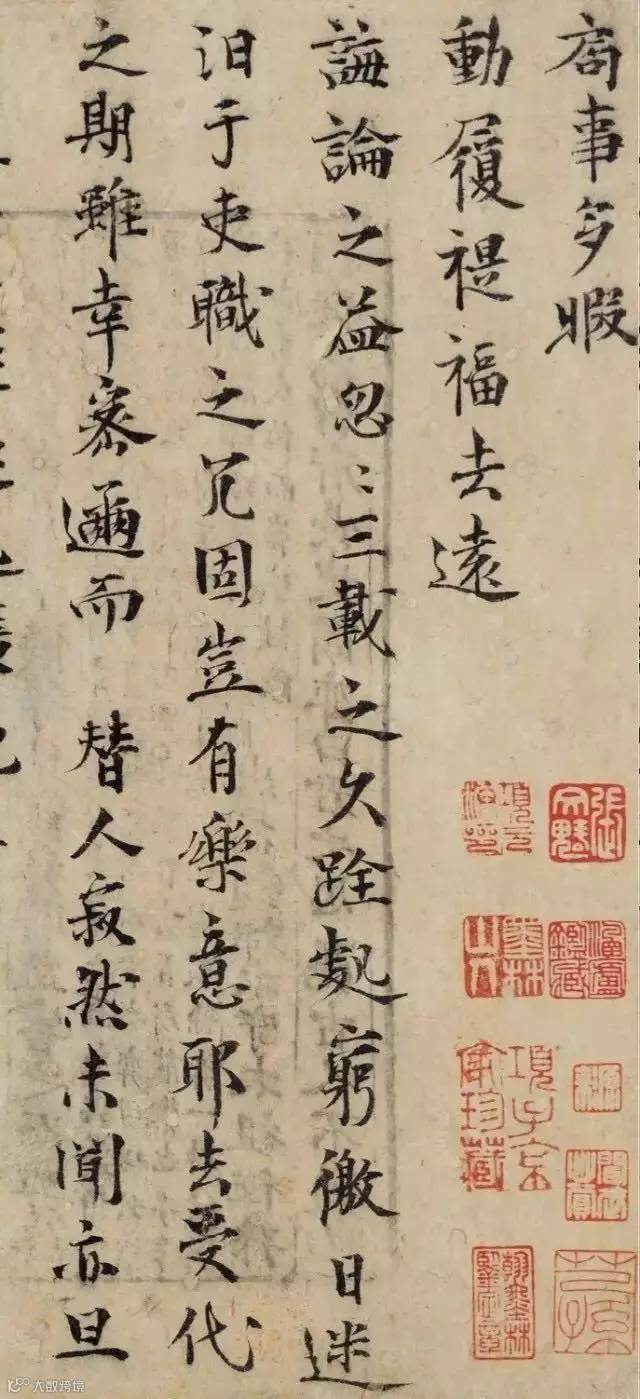 局事多暇
動履禔福去遠
誨論之益忽〻三載之久跧處窮徼日迷
汨于吏職之冗固豈有樂意耶去受代
之期雖幸密邇而 替人寂然未聞亦旦
張文魁
項元汴印
墨林山人
項子京家珍藏
大数跨境